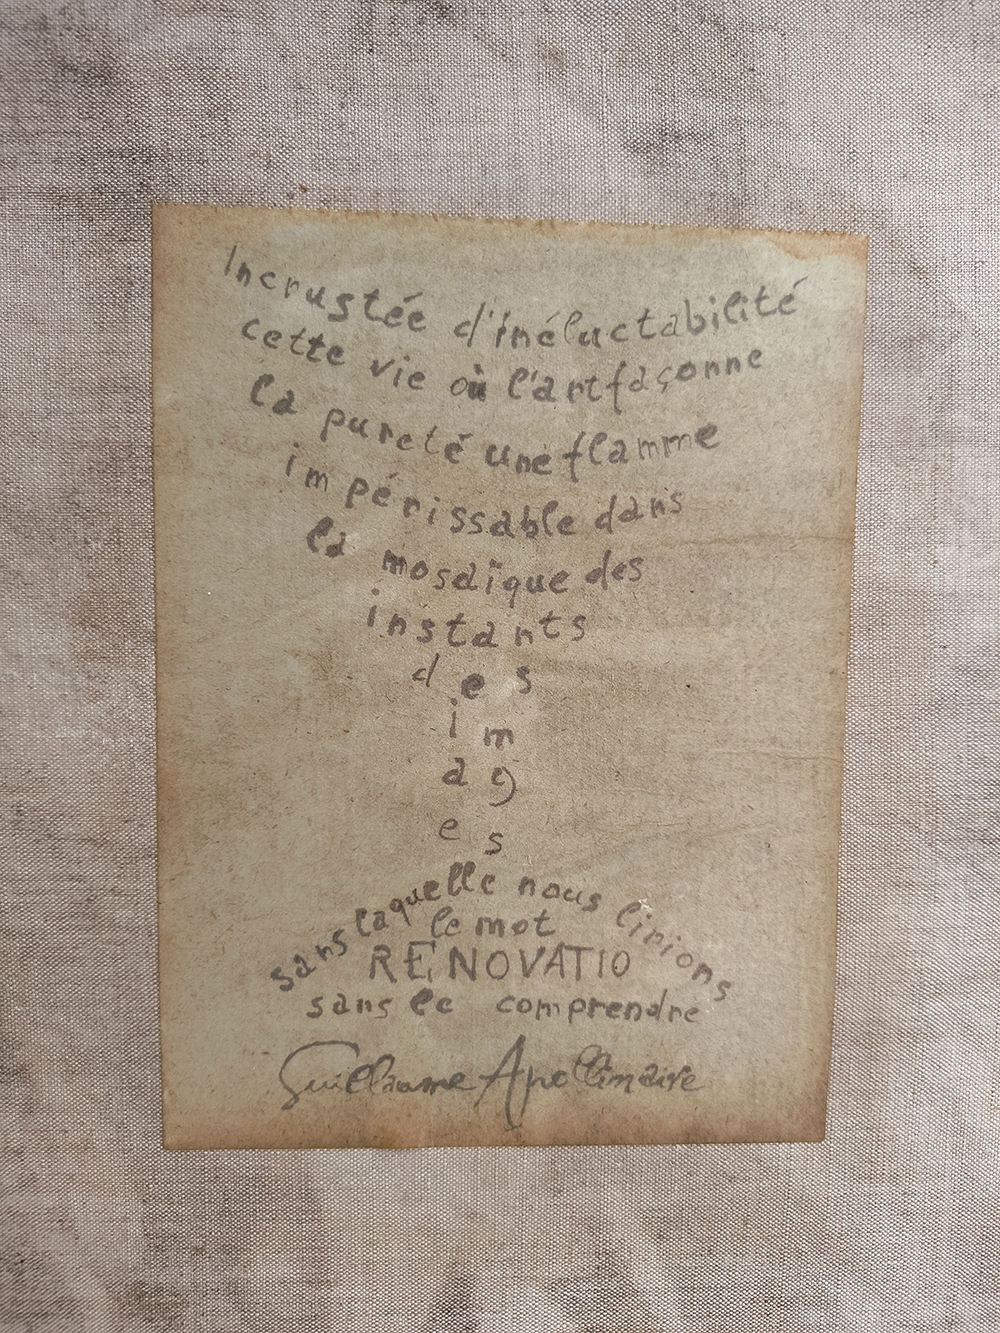 Incrustée d'inéluctabilité
cette vie où l'art façonne
la pureté une flamme
impérissable dans
la mosaïque des
instants
des
im
ag
es
sans laquelle nous lirions
le mot
RENOVATIO
sans le comprendre
Guillaume Apollinaire